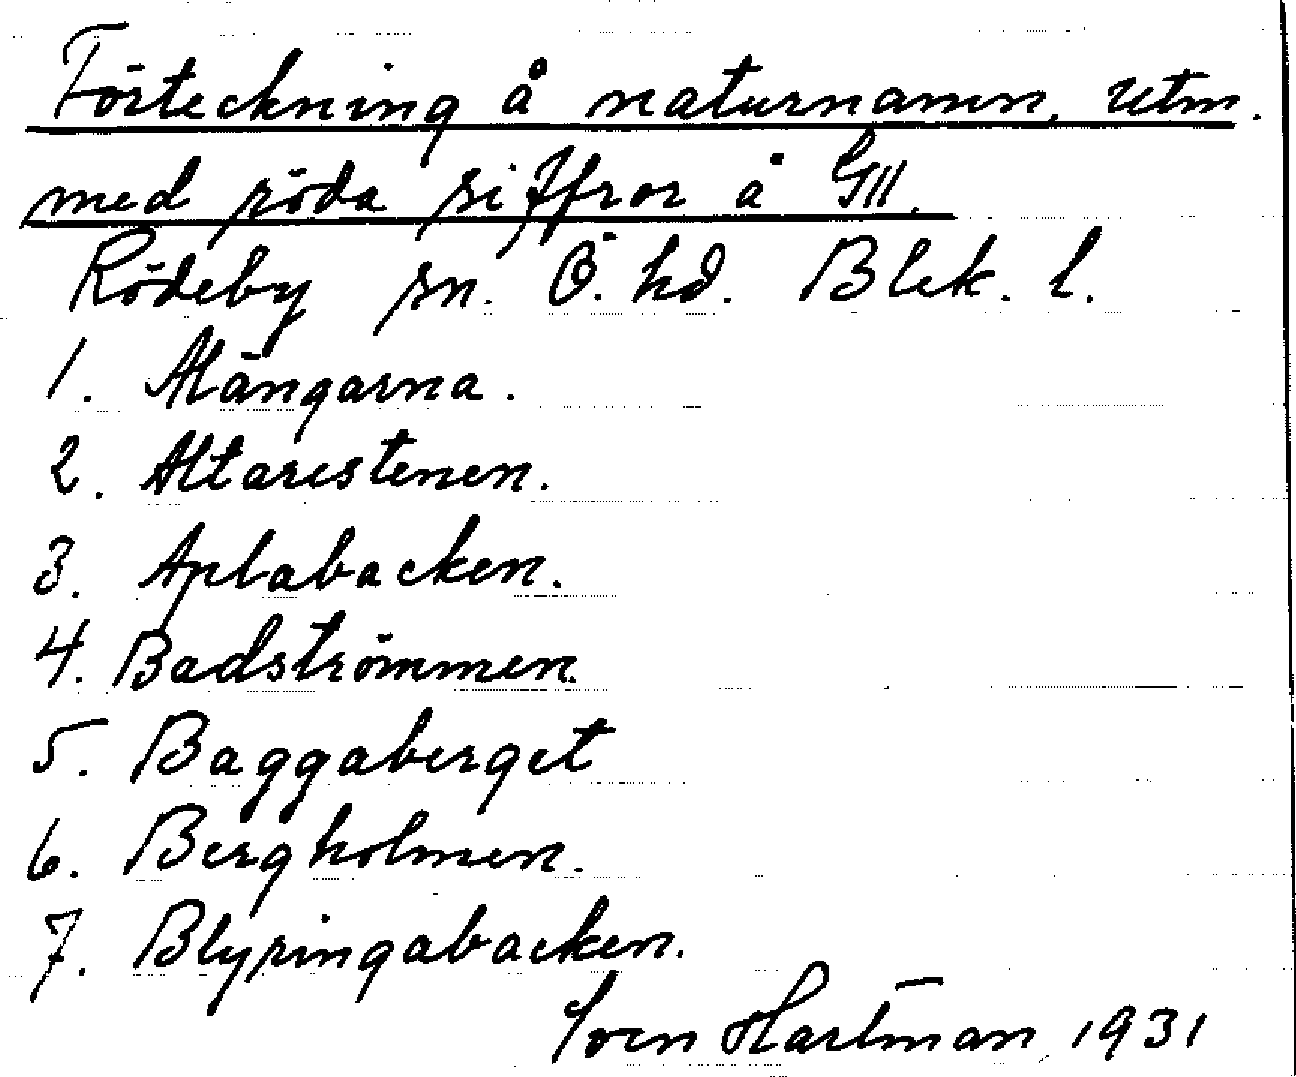 Förteckning å naturnamn, utm.
med röda siffror å GII.
Rödeby sn. Ö. hd. Blek. l.
1. Alängarna.
2. Altarestenen.
3. Aplabacken.
4. Badströmmen.
5. Baggaberget
6. Bergholmen.
7. Blyringabacken.
Sven Hartman 1931